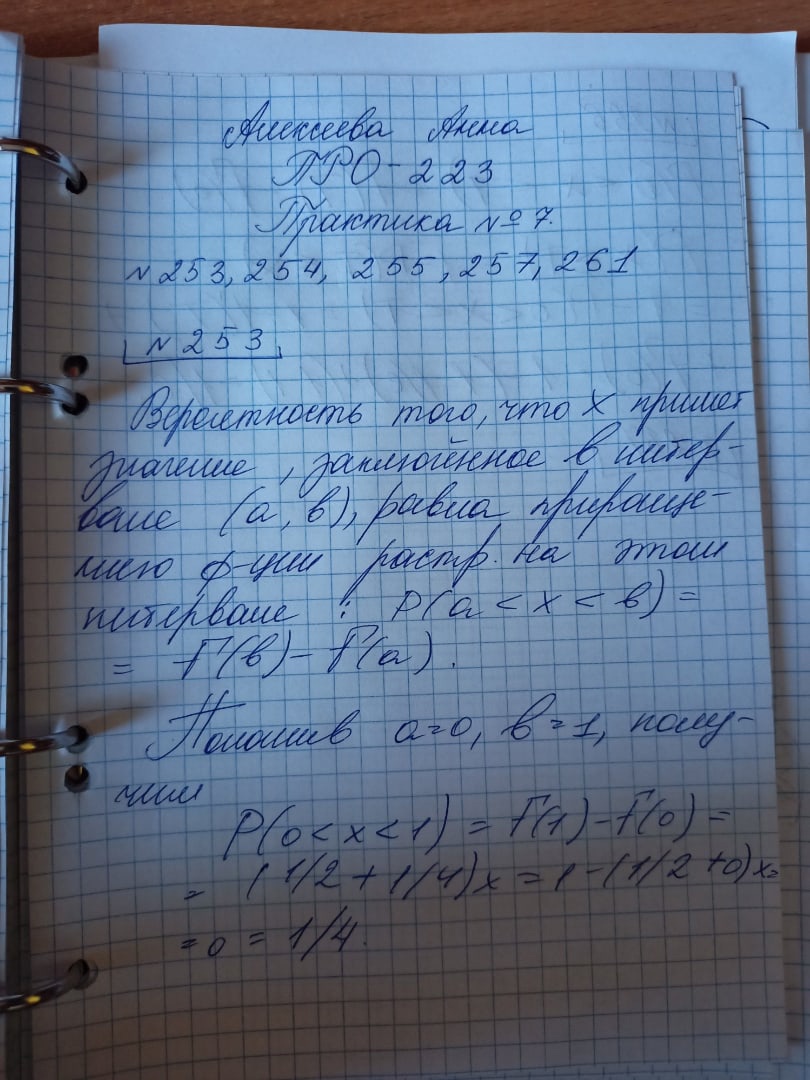 Алексеева Анна
ПРО-223
Практика № 7.
№ 253, 254, 255, 257, 261
№ 253
Вероятность того, что X примет
значение, заключённое в интер-
вале (а, в), равна прираще-
нию ф-ции распр. на этом
интервале : P(a < x < в) =
= F(в) - F(a).
Положив a=0, в=1, полу-
чим
P(0 < x < 1) = F(1) - F(0) =
= (1/2 + 1/4)x = 1 - (1/2 + 0)x =
= 0 = 1/4.